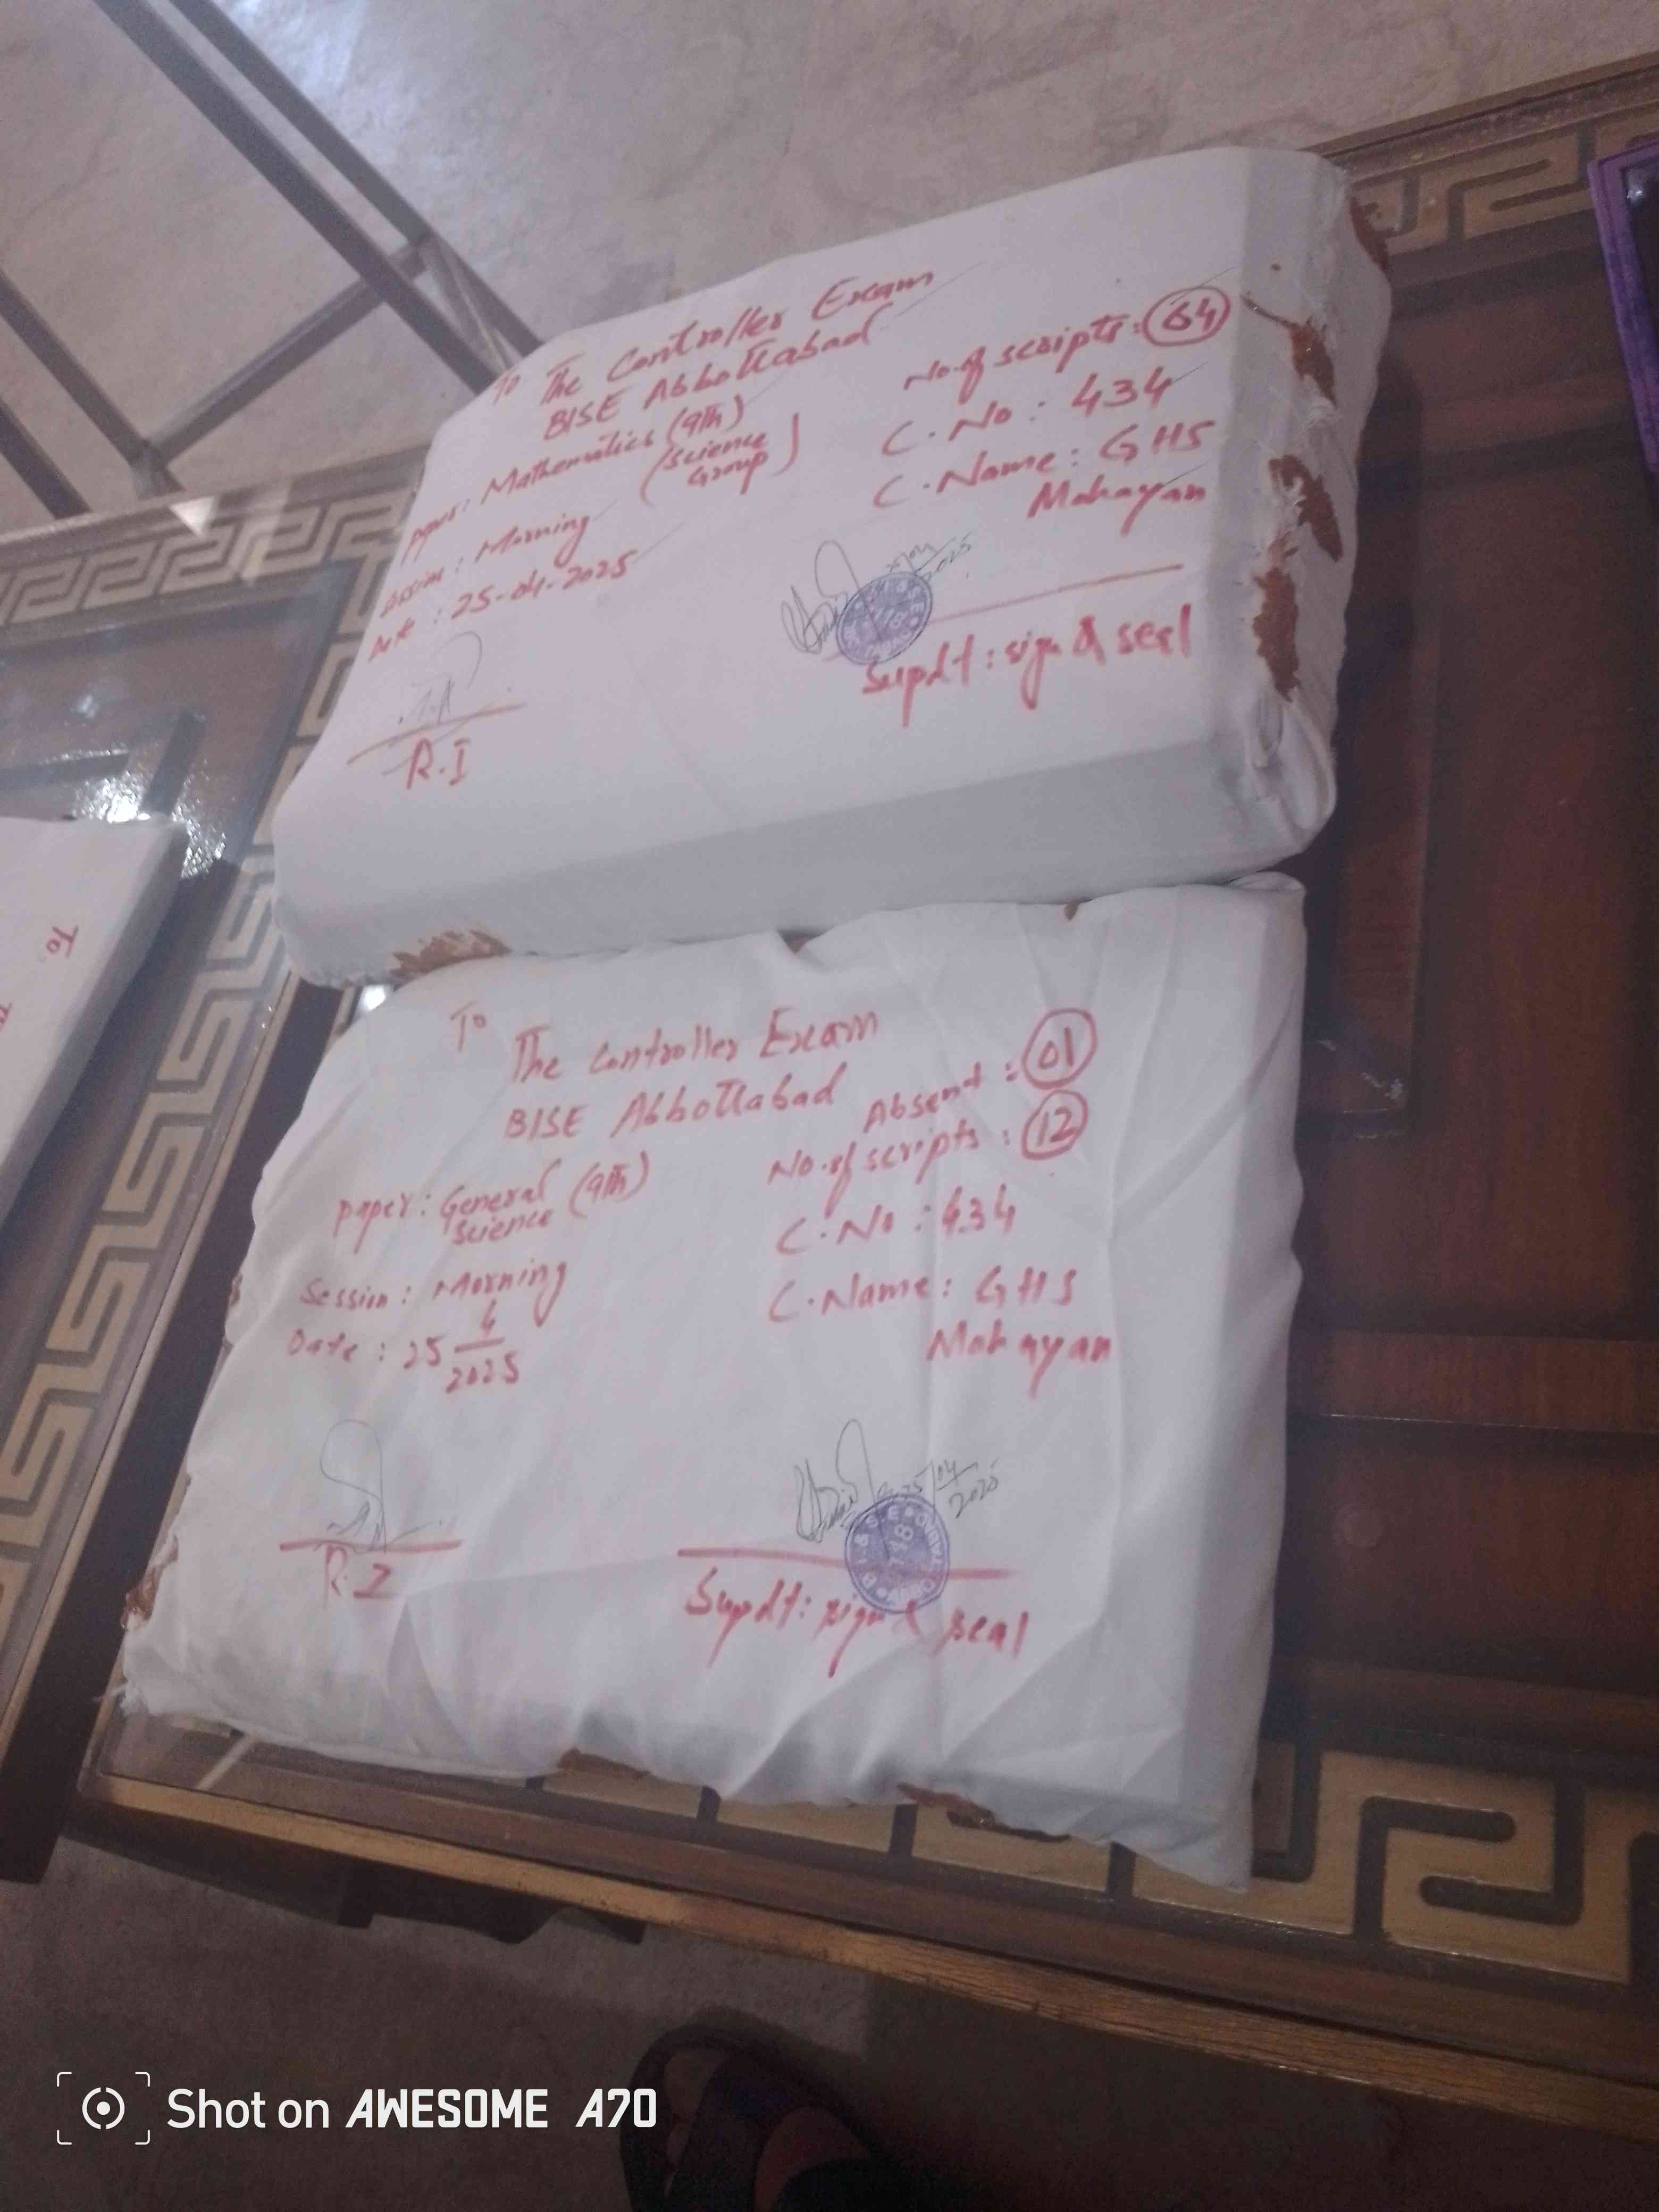 To The Controller Exam
BISE Abbottabad
Paper: Mathematics (9th)
(Science Group)
Session: Morning
Date: 25-04-2025
R.I
No. of scripts: 64
C. No: 434
C. Name: GHS
Mohayan
25/04/2025
Supdt: sign & seal
To
The Controller Exam
BISE Abbottabad
Paper: General (9th)
Science
Session: Morning
Date: 25 4/2025
R.I
Absent: 01
No. of scripts: 12
C. No: 434
C. Name: GHS
Mohayan
25/04/2025
Supdt: sign & seal
To,
Shot on AWESOME A70